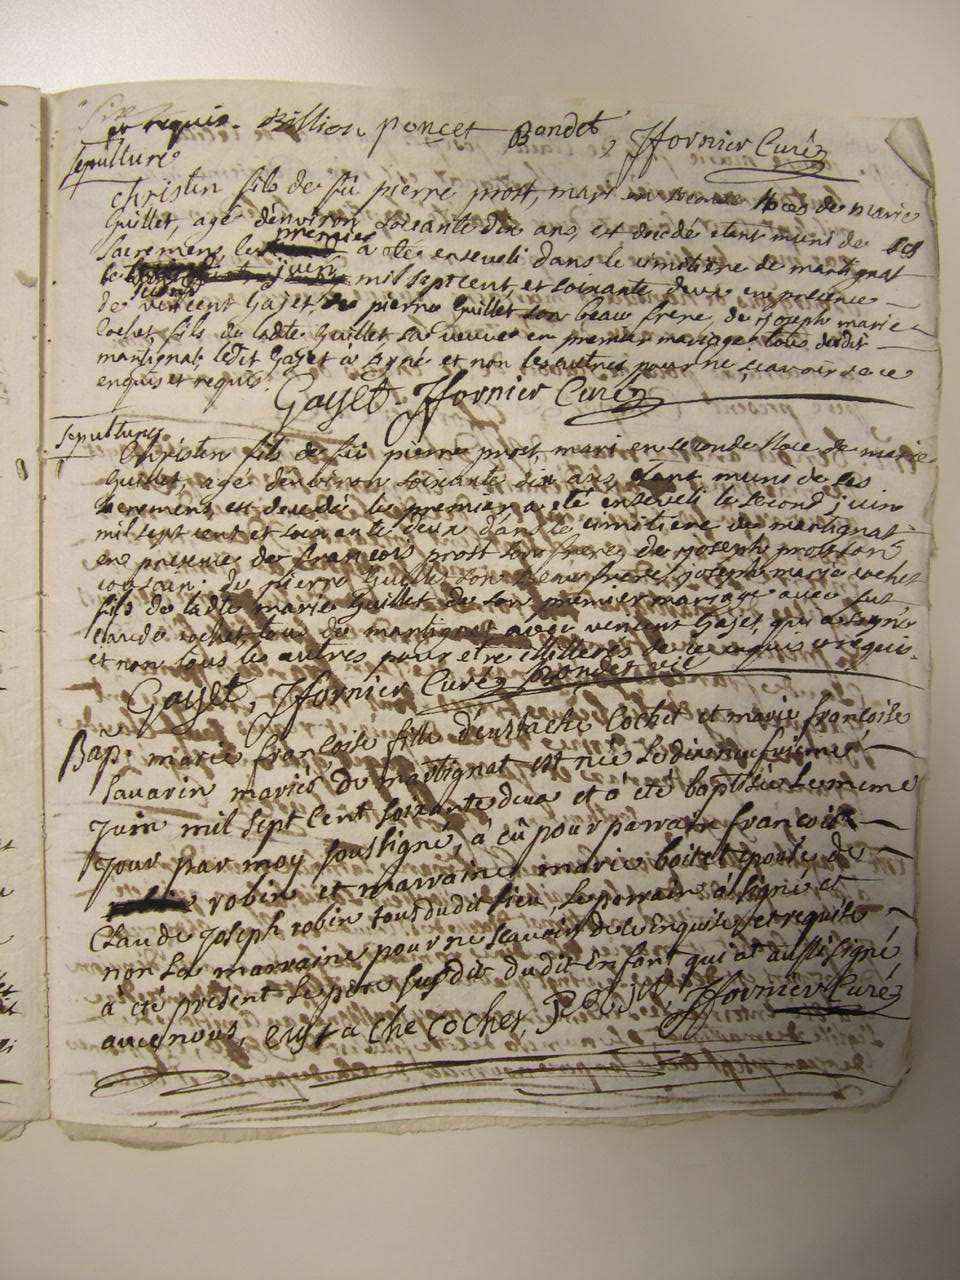 et requis. Billion poncet Bondet, Ffornier Curé
Sepulture
christin fils de fû pierre prost, mari en seconde Noces de marie
Guillet, agé d'environ soixante dix ans, est decedé etant muni de ses
sacremens le premier a été enseveli dans le cimitière de martignat
le second juin mil sept cent, et soixante deux en presence
de vincent Gajet, de pierre Guillet son beau frere, de joseph marie
Cochet, fils de ladte Guillet sa veuve en premier mariage tous dudit
martignat, ledit Gajet a signé et non les autres pour ne sçavoir de ce
enquis et requis
Gayet Ffornier Curé
Sepulture
Christin fils de fû pierre prost, mari en seconde Noce de marie
Guillet, agé d'environ soixante dix ans etant muni de ses
sacremens est decedé le premier a été enseveli le second juin
mil sept cent et soixante deux dans le cimitière de martignat
en presence de francois prost son frere, de joseph prost son
cousin, de pierre Guillet son beau frere, joseph marie cochet
fils de ladte marie Guillet de son premier mariage avec fut
claude cochet tous de martignat avec vincent Gajet, qui a signé
et non tous les autres pour etre illiteres de ce enquis et requis.
Gayet, Ffornier Curé
Bap. marie françoise fille d'eustache Cochet et marie françoise
Savarin mariés de martignat est née le dixneufvieme
juin mil sept cent soixante deux et a été baptisée le meme
jour par moy soussigné, a eû pour parrain françois
robin et marraine marie boilet epouse de
Claude joseph robin tous dudit lieu, le parrain a signé et
non la marraine pour ne sçavoir de ce enquise et requise
a été present le pere susdit dudit enfant qui at aussi signé
avec nous, eustache cochet, Ffornier Curé